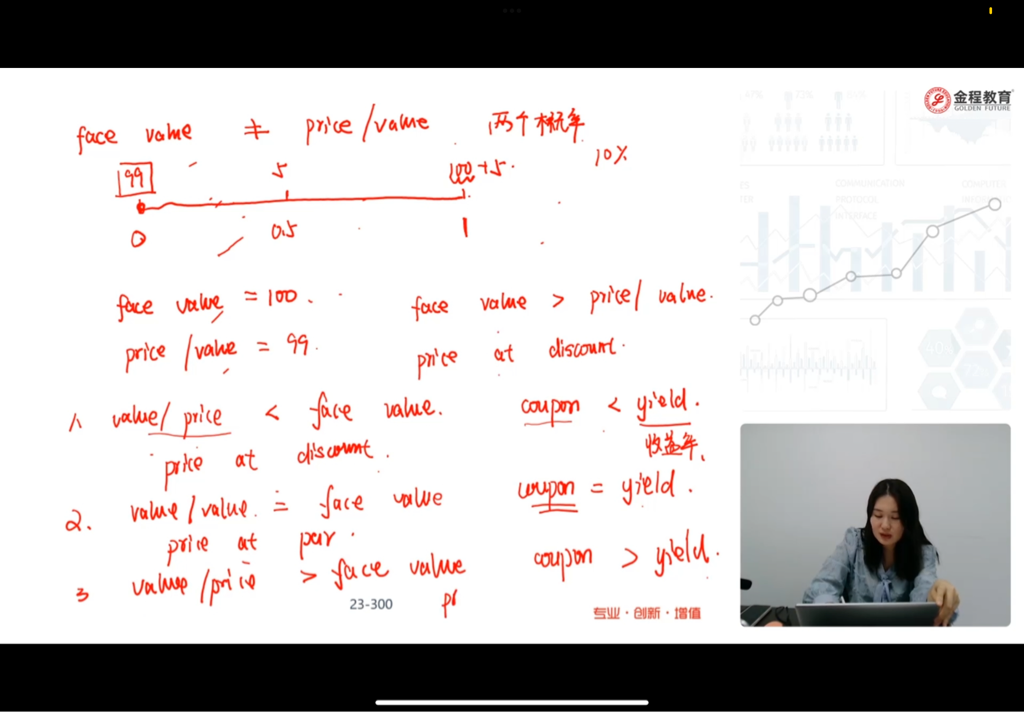 金程教育
GOLDEN FUTURE
face value ≠ price/value 两个概率
99 5 100+5. 10%
0 0.5 1
face value = 100. face value > price/ value.
price /value = 99. price at discount.
1, value/ price < face value. coupon < yield.
收益率.
price at discount.
2. value/value. = face value coupon = yield.
price at par.
3 value/price > face value coupon > yield.
23-300
专业·创新·增值